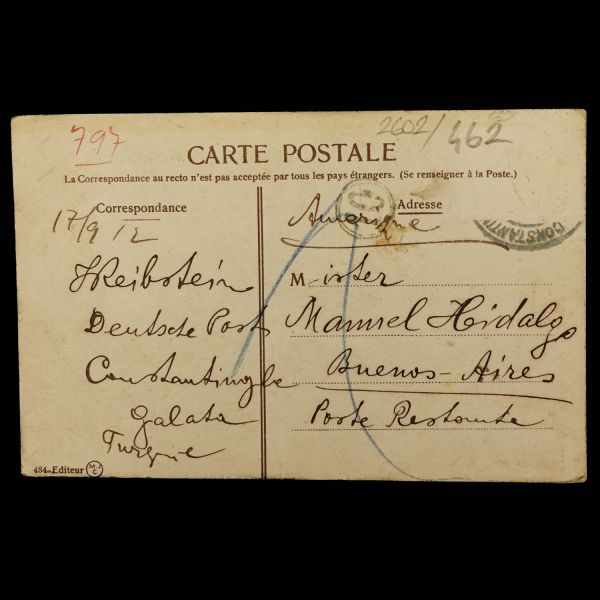 797
2602/462
CARTE POSTALE
La Correspondance au recto n'est pas acceptée par tous les pays étrangers. (Se renseigner à la Poste.)
Correspondance
Adresse
17/9 12
CONSTANTIN
Deutsche Post
Constantinople
Galata
Turquie
Mister
Manuel Hidalgo
Buenos-Aires
Poste Restante
434 Editeur MJC